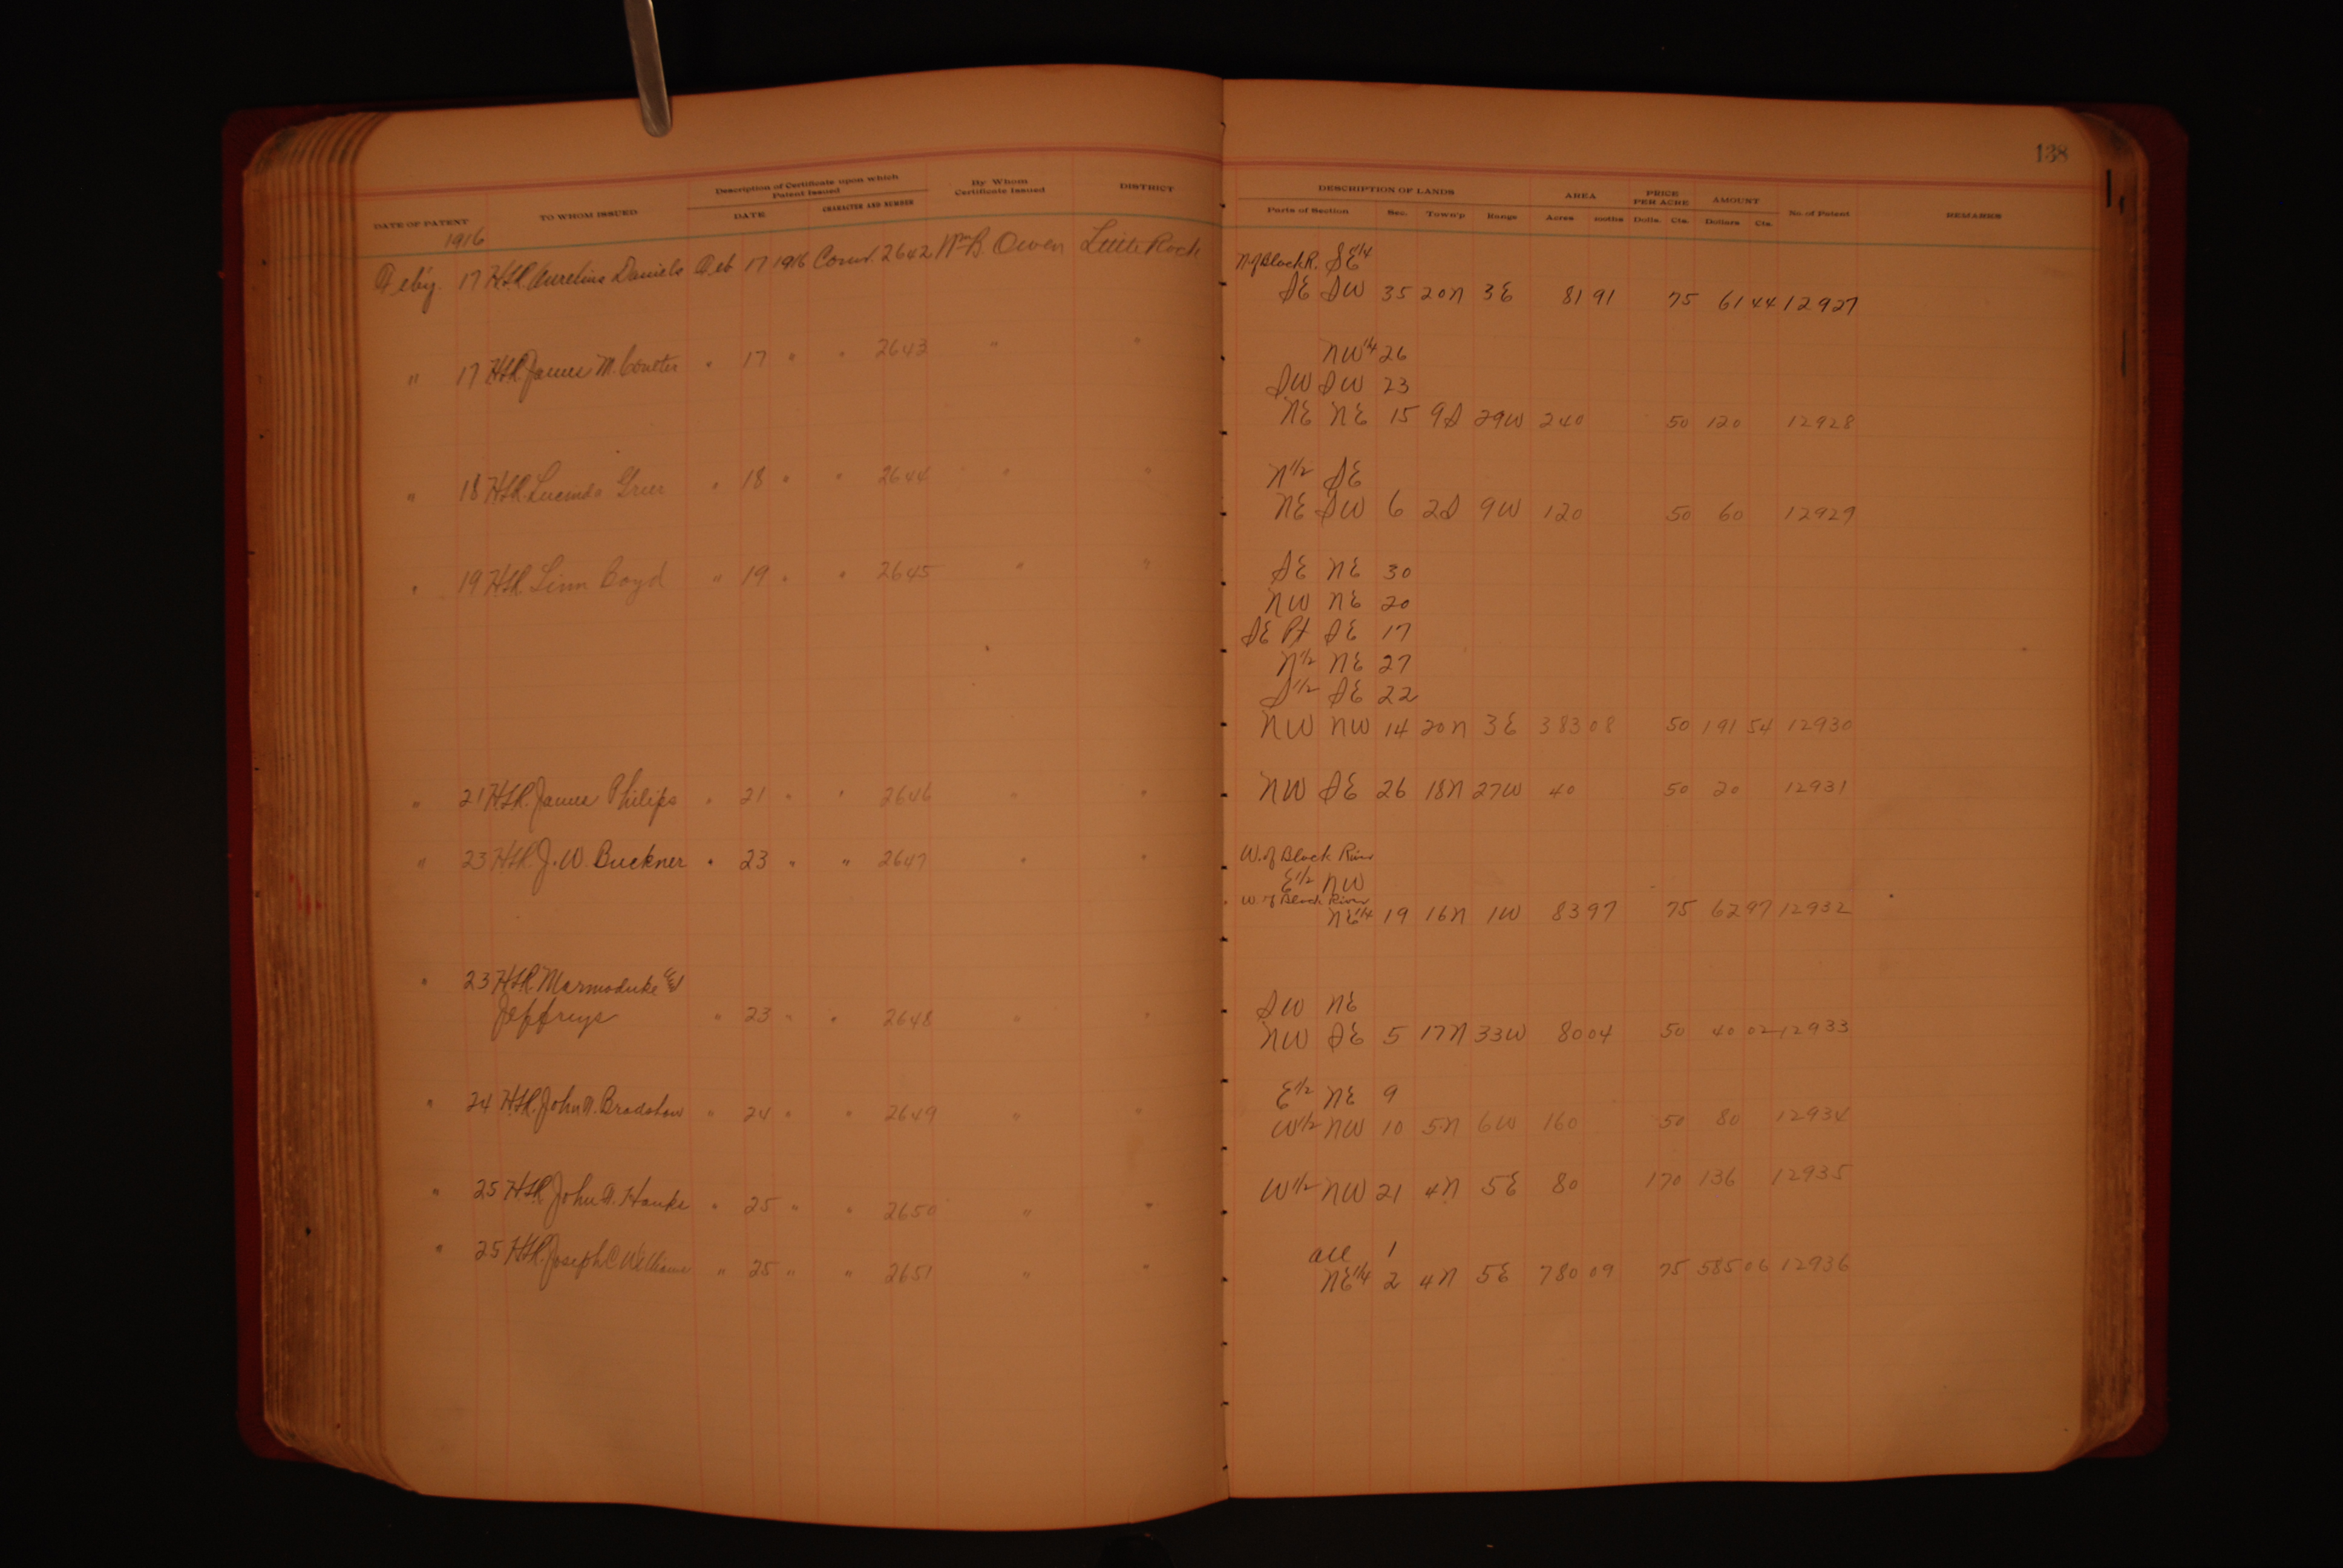 138
DATE OF PATENT TO WHOM ISSUED Description of Certificate upon which Patent Issued DATE CHARACTER AND NUMBER By Whom Certificate Issued DISTRICT DESCRIPTION OF LANDS Parts of Section Sec. Town'p Range AREA Acres PRICE PER ACRE Dolls. Cts. AMOUNT Dollars Cts. No of Patent REMARKS
1916
Feby. 17 Aurelius Daniels Feb 17 1916 Conv. 2642 Wm B. Owen Little Rock N of Black R. SE 1/4
SE SW 35 20N 3E 81 91 75 61 44 12927
NW 1/4 26
" 17 James M. Coulter " 17 " " 2643 " " SW SW 23
NE NE 15 9S 29W 240 50 120 12928
N 1/2 SE
" 18 Lucinda Greer " 18 " " 2644 " " NE SW 6 2S 9W 120 50 60 12929
" 19 Linn Boyd " 19 " " 2645 " " SE NE 30
NW NE 20
SE Pt SE 17
N 1/2 NE 27
S 1/2 SE 22
NW NW 14 20N 3E 383 08 50 191 54 12930
" 21 James Philips " 21 " " 2646 " " NW SE 26 18N 27W 40 50 20 12931
" 23 J. W. Buckner " 23 " " 2647 " " W. of Black River
E 1/2 NW
W. of Black River
NE 1/4 19 16N 1W 83 97 75 62 97 12932
" 23 Marmaduke E
Jeffreys " 23 " " 2648 " " SW NE
NW SE 5 17N 33W 80 04 50 40 02 12933
E 1/2 NE 9
" 24 John N. Bradshaw " 24 " " 2649 " " W 1/2 NW 10 5N 6W 160 50 80 12934
" 25 John Hanks " 25 " " 2650 " " W 1/2 NW 21 4N 5E 80 1 70 136 12935
" 25 Joseph C Williams " 25 " " 2651 " " all 1
NE 1/4 2 4N 5E 780 09 75 585 06 12936